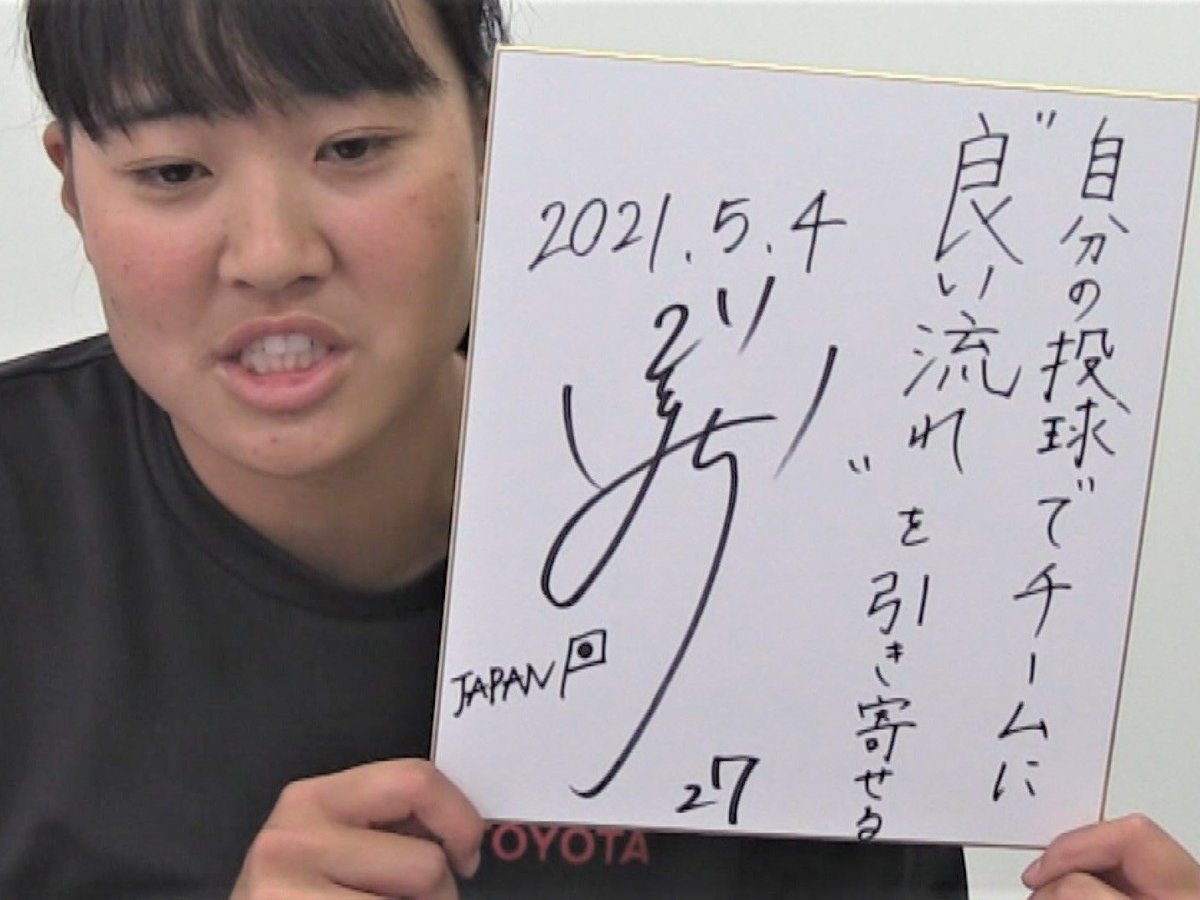 自分の投球でチームに
"良い流れ"を引き寄せる
2021.5.4
JAPAN
27
TOYOTA